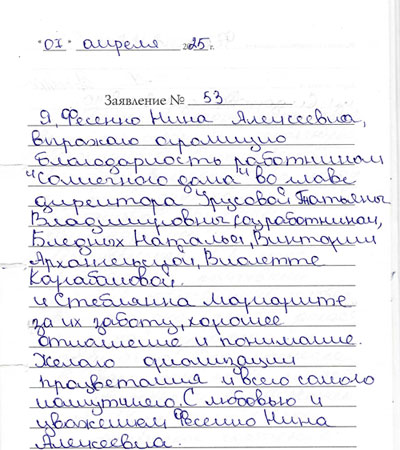 "01" апреля 2025 г.
Заявление № 53
Я, Фесенко Нина Алексеевна,
выражаю огромную
благодарность работникам
"Солнечного дома" во главе
директора Трусовой Татьяны
Владимировны, соцработникам,
Бледных Наталье, Виктории
Архангельской, Виолетте
Карабановой
и Стеблянка Маргарите
за их заботу, хорошее
отношение и понимание.
Желаю
процветания и всего самого
наилучшего. С любовью и
уважением Фесенко Нина
Алексеевна.